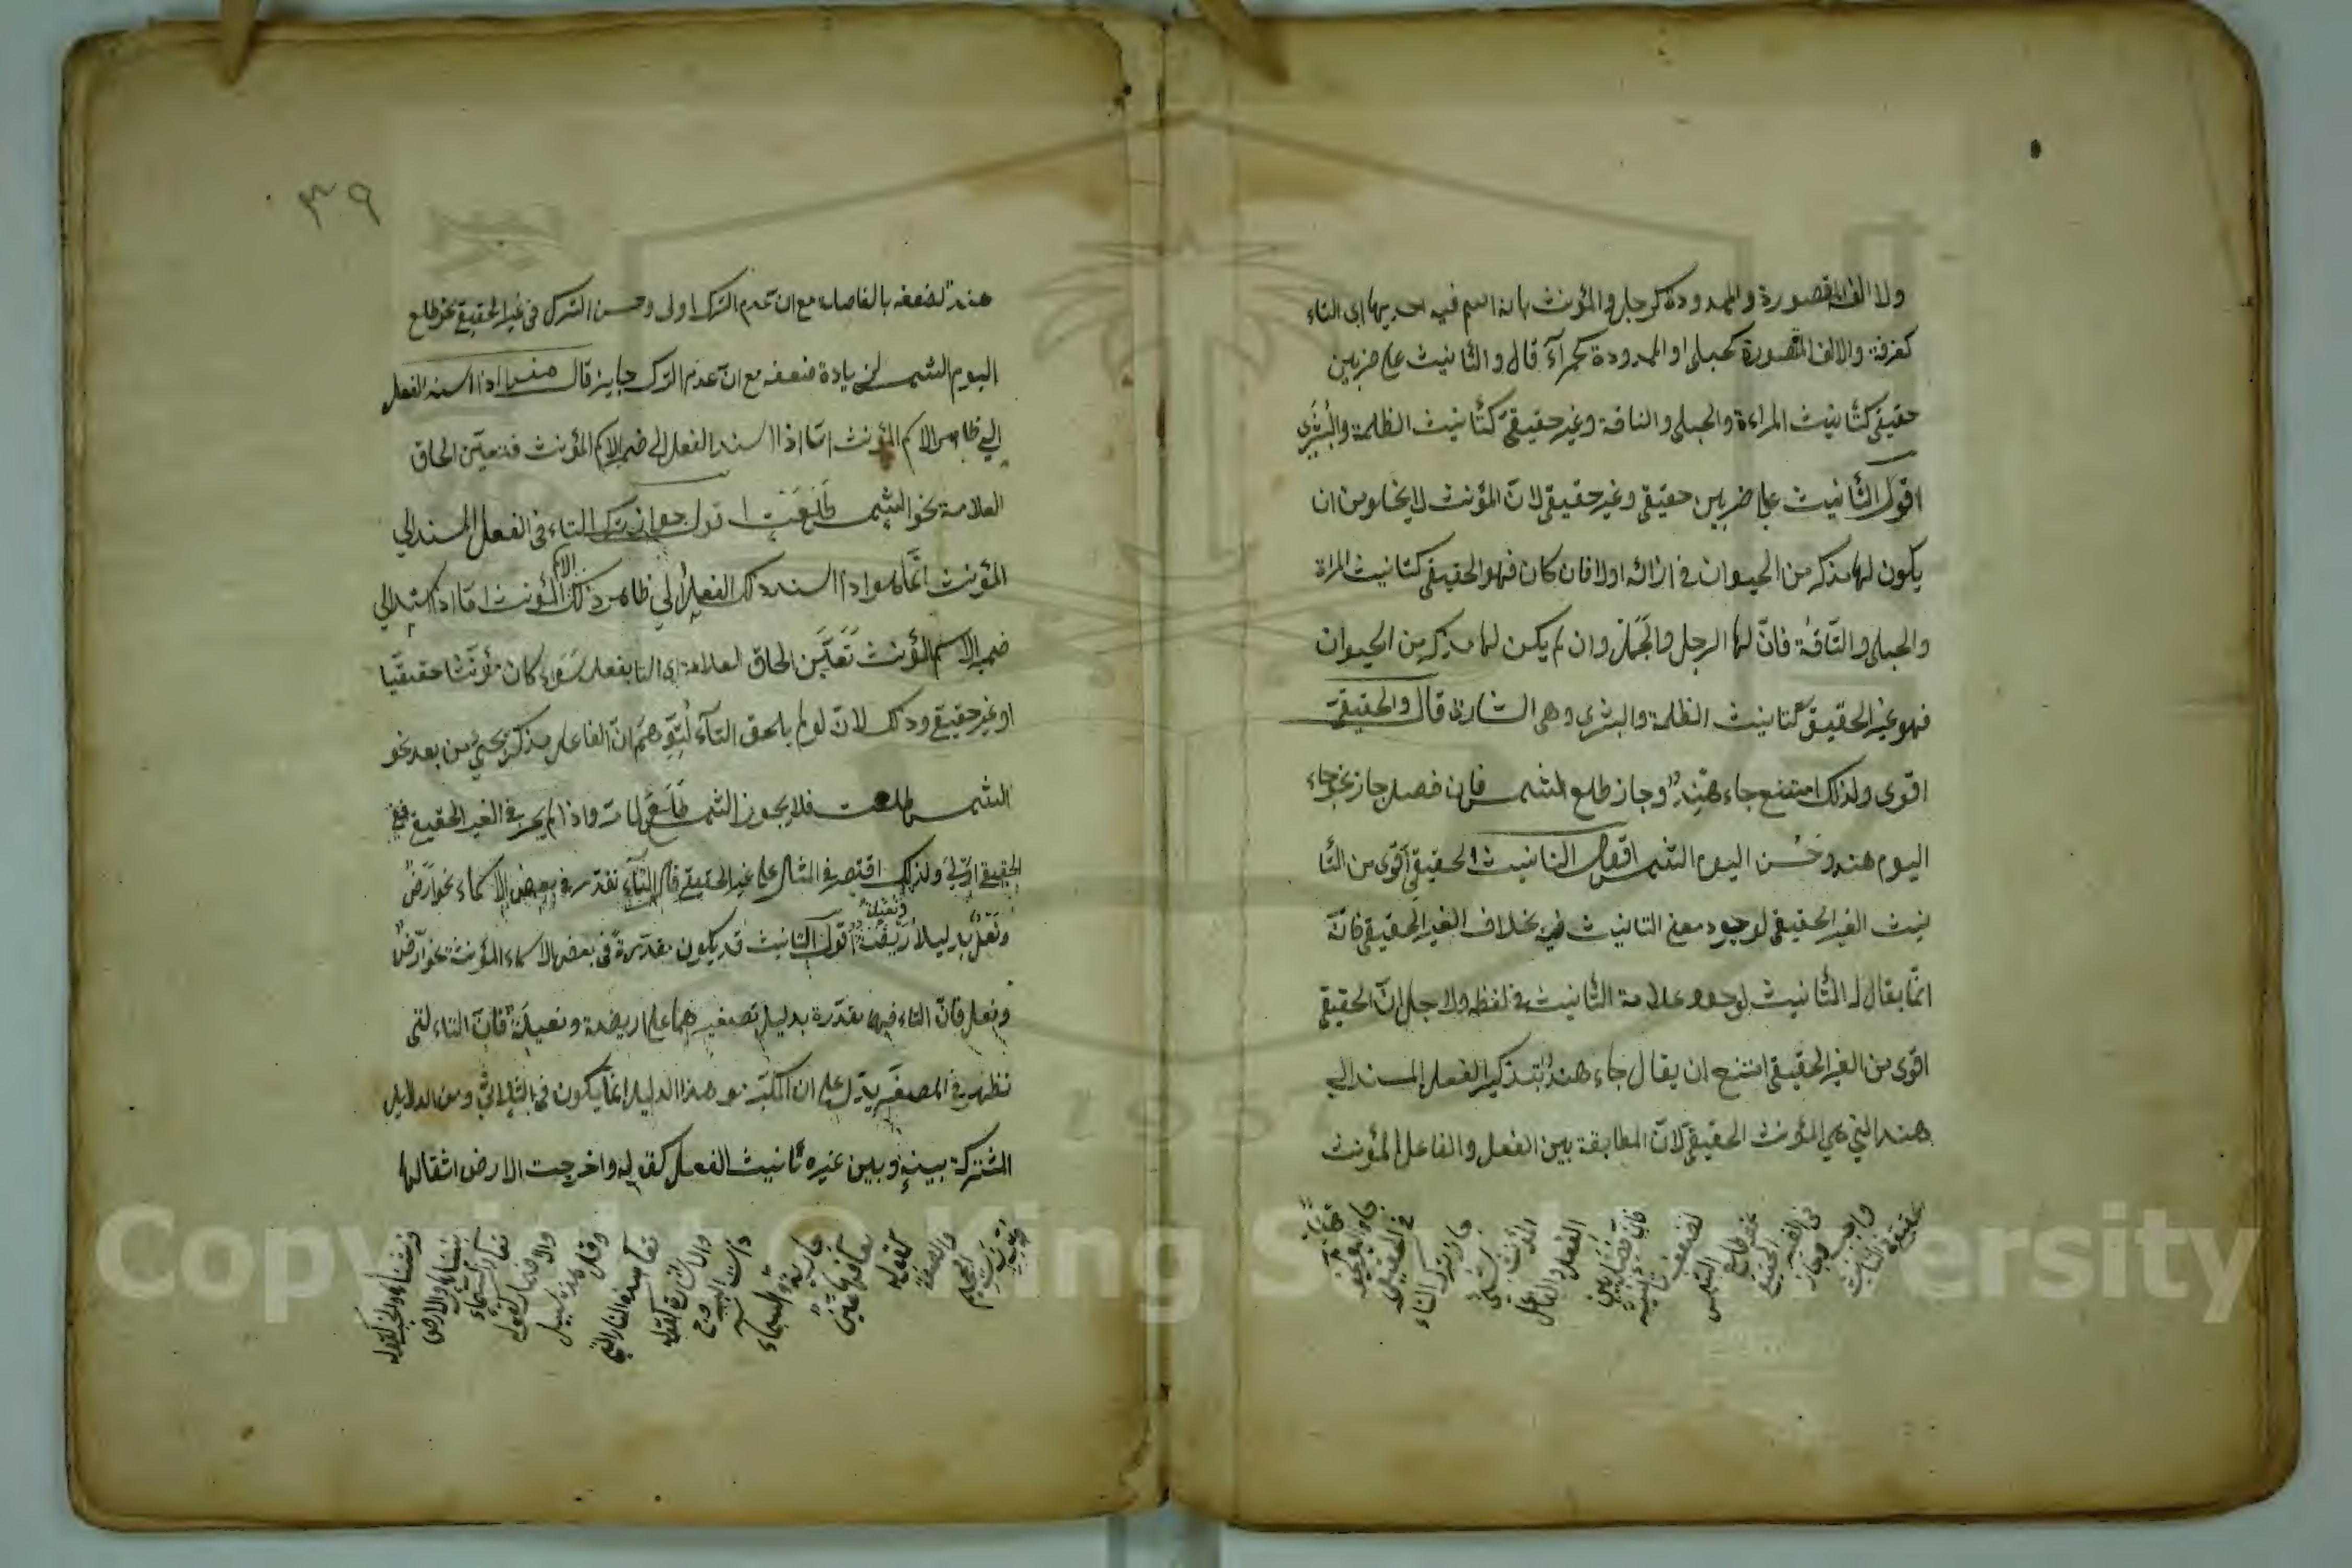 ولا الف المقصورة والممدودة كرجل والمؤنث بانه اسم فيه احديها اى التاء
كغرفة والالف المقصورة كحبلى او الممدودة كحمرآء قال والتأنيث على ضربين
حقيقى كتأنيث المراءة والحبلى والناقة وغير حقيقى كتأنيث الظلمة والبشرى
اقول التأنيث على ضربين حقيقى وغير حقيقى لان المؤنث لا يخلو من ان
يكون لها مذكر من الحيوان فى ازائه اولا فان كان فهو الحقيقى كتانيث المراة
والحبلى والنّاقة فانّ لها الرجل والجمل وان لم يكن لها مذكر من الحيوان
فهو غير الحقيقى كتانيث الظلمة والبشرى وهى البشارة قال والحقيقىّ
اقوى ولذلك امتنع جاء هندٌ وجاز طلع الشمس فان فصل جاز نحو جاء
اليوم هند وحَسُن اليوم الشمس اقول التانيث الحقيقى اقوى من التأ
نيث الغير الحقيقى لوجود معنى التانيث فيه بخلاف الغير الحقيقى فانّه
انّما يقال له التّأنيث لوجود علامة التّأنيث فى لفظه ولاجل انّ الحقيقى
اقوى من الغير الحقيقى امتنع ان يقال جاء هندٌ بتذكير الفعل المسند الى
هند التى هى المؤنث الحقيقى لانّ المطابقة بين الفعل والفاعل المؤنث
الحقيقى
واجب وجاز
فى الغير
الحقيقى
نحو طلع
الشمس
لضعفه
فان فصل بين
الفعل والفاعل
المؤنث
جاز ترك التاء
فى الحقيقى
نحو جاء اليوم
٣٩
هندٌ لضعفه بالفاصلة مع ان عدم الترك اولى وحسن الترك فى غير الحقيقى نحو طلع
اليوم الشمس لزيادة ضعفه مع انّ عدم الترك جايز قال هذا اذا اسند الفعل
الى ظاهر الاسم المؤنث امّا اذا اسند الفعل الى ضمير الاسم المؤنث فتعيّن الحاق
العلامة نحو الشمس طَلَعَتْ اقول جواز ترك التاء فى الفعل المسند الى
المؤنث انّما هو اذا اسند ذلك الفعل الى ظاهر ذلك الاسم المؤنث امّا اذا اسند الى
ضمير الاسم المؤنث تَعَيَّن الحاق العلامة اى التا بفعله سَوَاء كان مؤنّثا حقيقيّا
او غير حقيقى وذلك لانّ لو لم يلحق التآء لتُوُهِّمَ انّ الفاعل مذكر يجئ من بعد نحو
الشمس طلعت فلا يجوز الشمس طَلَعَ لما مرّ واذا لم يجز فى الغير الحقيقى ففى
الحقيقى اولى ولذلك اقتصر فى المثال على غير الحقيقى قال التّآء تقدّر فى بعض الاسماء نحو ارضٌ
ونَعْلٌ بدليل اُرَيْضَةٌ ونُعَيْلَةٌ اقول التانيث قد يكون مقدّرةً فى بعض الاسماء المؤنثة نحو ارضٌ
ونعل فانّ التاء فيهما مقدّرة بدليل تصغيرهما على اريضة ونعيلة فانّ التاء لتى
تظهر فى المصغّر يدّل على ان المكبّر هذا الدليل انّما يكون فى الثلاثى ومن الدلايل
المشتركة بينه وبين غيره تأنيث الفعل كقوله واخرجت الارض اثقالها
والصفة
كقوله
تعالى
عين
جارية
والسماء
ذات البروج
والاشارة كقوله
تعالى هذه النار التى
وقل هذه سبيلى
والاضمار كقوله
تعالى والسماء
بنيناها والارض